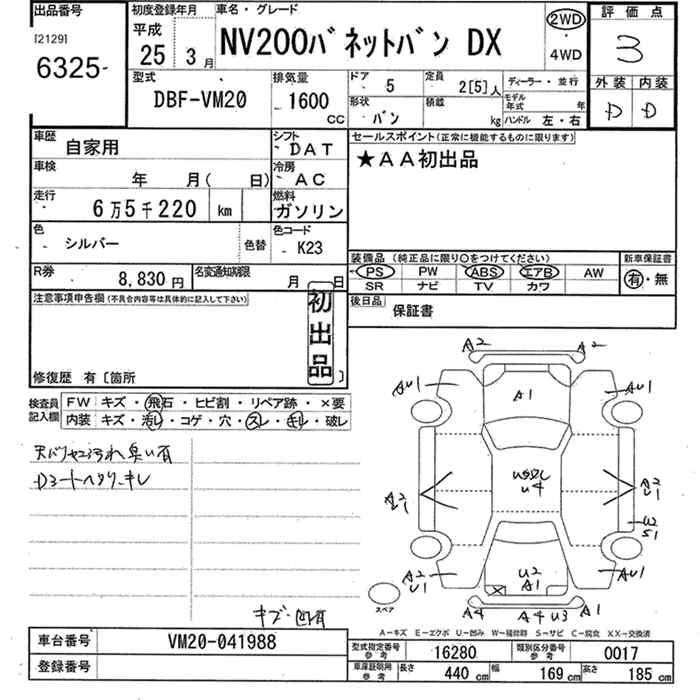 出品番号
[2129]
6325-
初度登録年月
平成
25 3月
車名・グレード
NV200バネットバン DX
2WD
・
4WD
評価点
3
外装 内装
D D
型式
DBF-VM20
排気量
1600
CC
ドア
5
定員
2[5]人
ディーラー・並行
形状
バン
積載
kg
モデル年式
年
ハンドル 左・右
車歴
自家用
シフト
DAT
車検
年 月( 日)
冷房
AC
走行
6万5千220 km
燃料
ガソリン
色
シルバー
色替
色コード
K23
R券
8,830円
名変通知期限
月 日
セールスポイント(正常に機能するものに限ります)
★AA初出品
装備品 (純正品に限り○をつけてください)
PS PW ABS エアB AW
SR ナビ TV カワ
新車保証書
有・無
後日品
保証書
注意事項申告欄(不具合内容等は具体的に記入して下さい)
初出品
修復歴 有〔箇所 〕
検査員記入欄
FW キズ・飛石・ヒビ割・リペア跡・×要
内装 キズ・汚レ・コゲ・穴・スレ・キレ・破レ
天バリヤニ汚れ臭い有
Dシートヘタリ、キレ
キズ・凹有
A2 A2
AU1 A1 AU1
U4
A2
U1
A2
U1
U2
S1
A2
U1
U2
A1
AU1
スペア
A4 A4 U3 A1
A-キズ E-エクボ U-凹み W-補修跡 S-サビ C-腐食 XX-交換済
車台番号
VM20-041988
登録番号
型式指定番号
参考
16280
類別区分番号
参考
0017
車庫証明用
参考
長さ
440 cm
幅
169 cm
高さ
185 cm